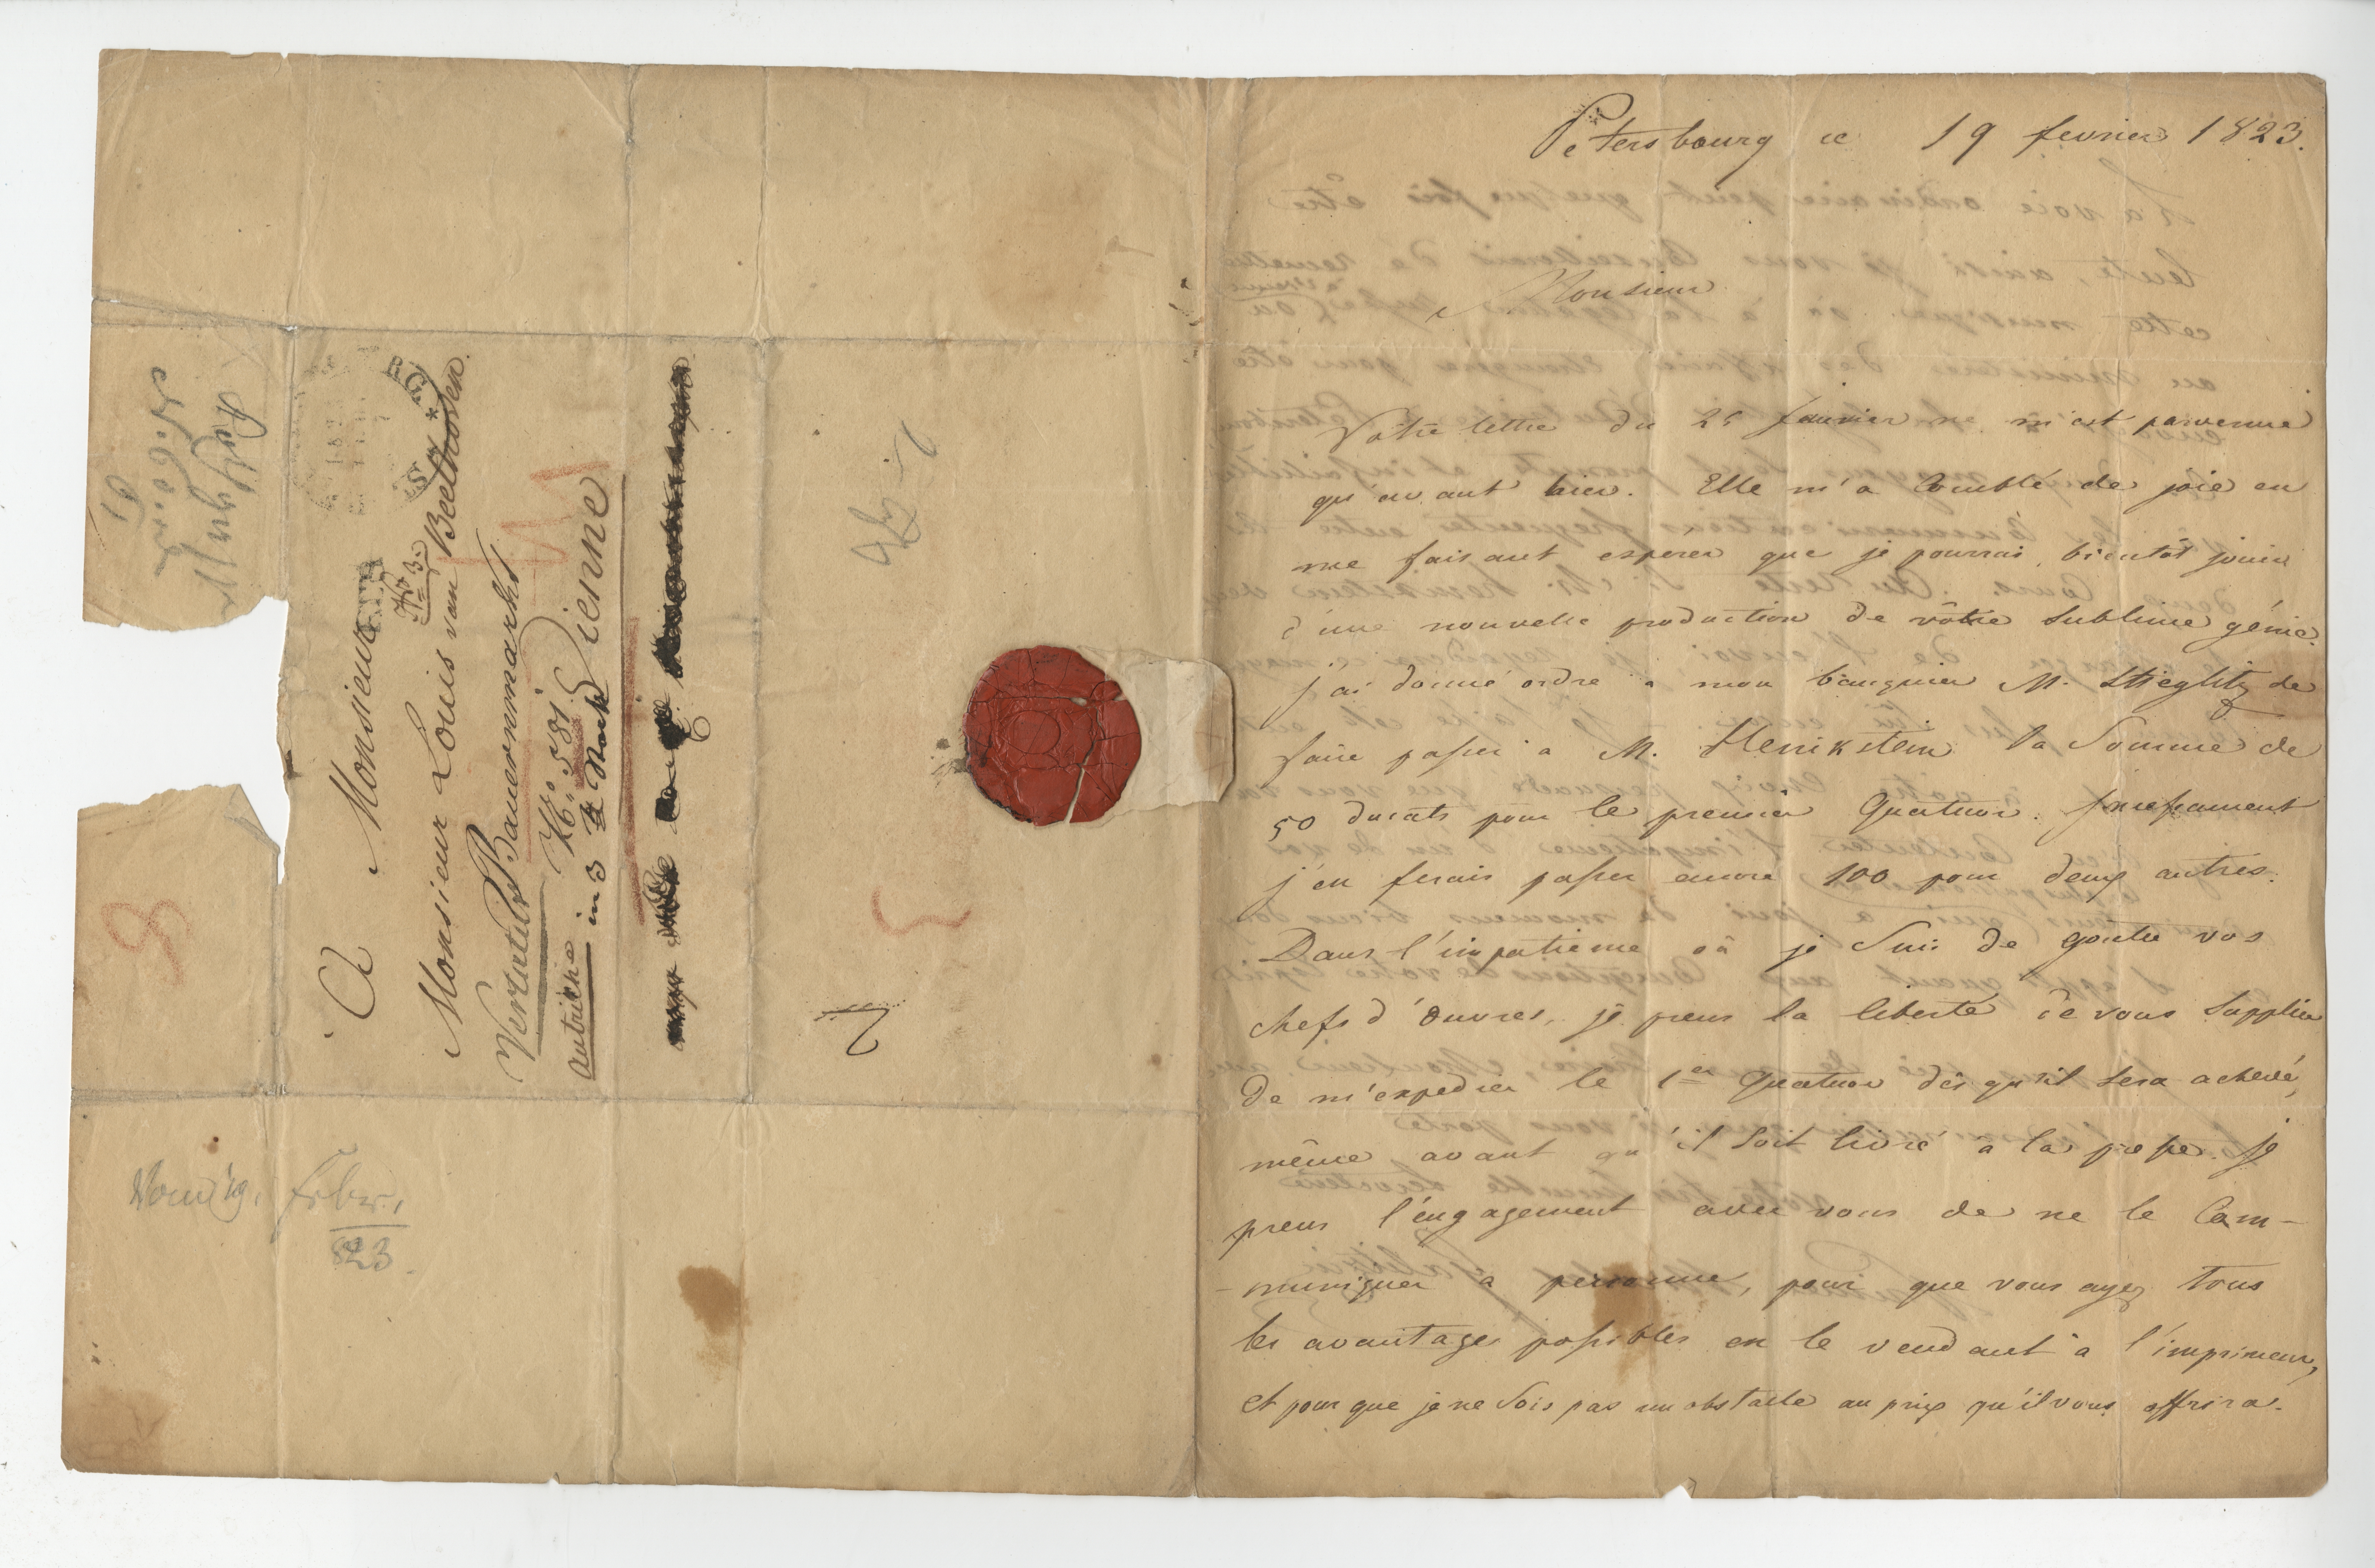 A Monsieur
Monsieur Louis van Beethoven.
No 3.
Bauernmarkt
No. 581.
autriche in 3 Stock Vienne
febr.
823
Petersbourg ce 19 fevrier 1823.
Monsieur
Vôtre lettre du 25 Janvier ne m'est parvenue
qu'avant hier. Elle m'a Comblé de joie en
me faisant espérer que je pourrai bientôt jouir
d'une nouvelle production de vôtre Sublime génie.
j'ai donné ordre à mon banquier M. Stieglitz de
faire passer à M. Henikstein la Somme de
50 ducats pour le premier Quatuor. Incessament
j'en ferais passer encore 100 pour deux autres.
Dans l'impatience où je Suis de gouter vos
chefs d'ôuvres, je prens la liberté de vous Supplier
de m'expedier le 1er Quatuor dès qu'il Sera achevé,
même avant qu'il Soit livré à la presse. Je
prens l'engagement avec vous de ne le Com-
-muniquer à personne, pour que vous ayez tous
les avantages possibles en le vendant à l'imprimeur,
et pour que je ne Sois pas un obstacle au prix qu'il vous offrira.